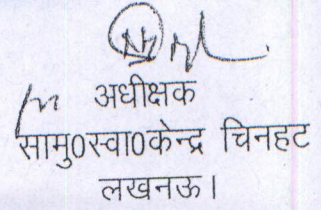 अधीक्षक
सामु0स्वा0केन्द्र चिनहट
लखनऊ।